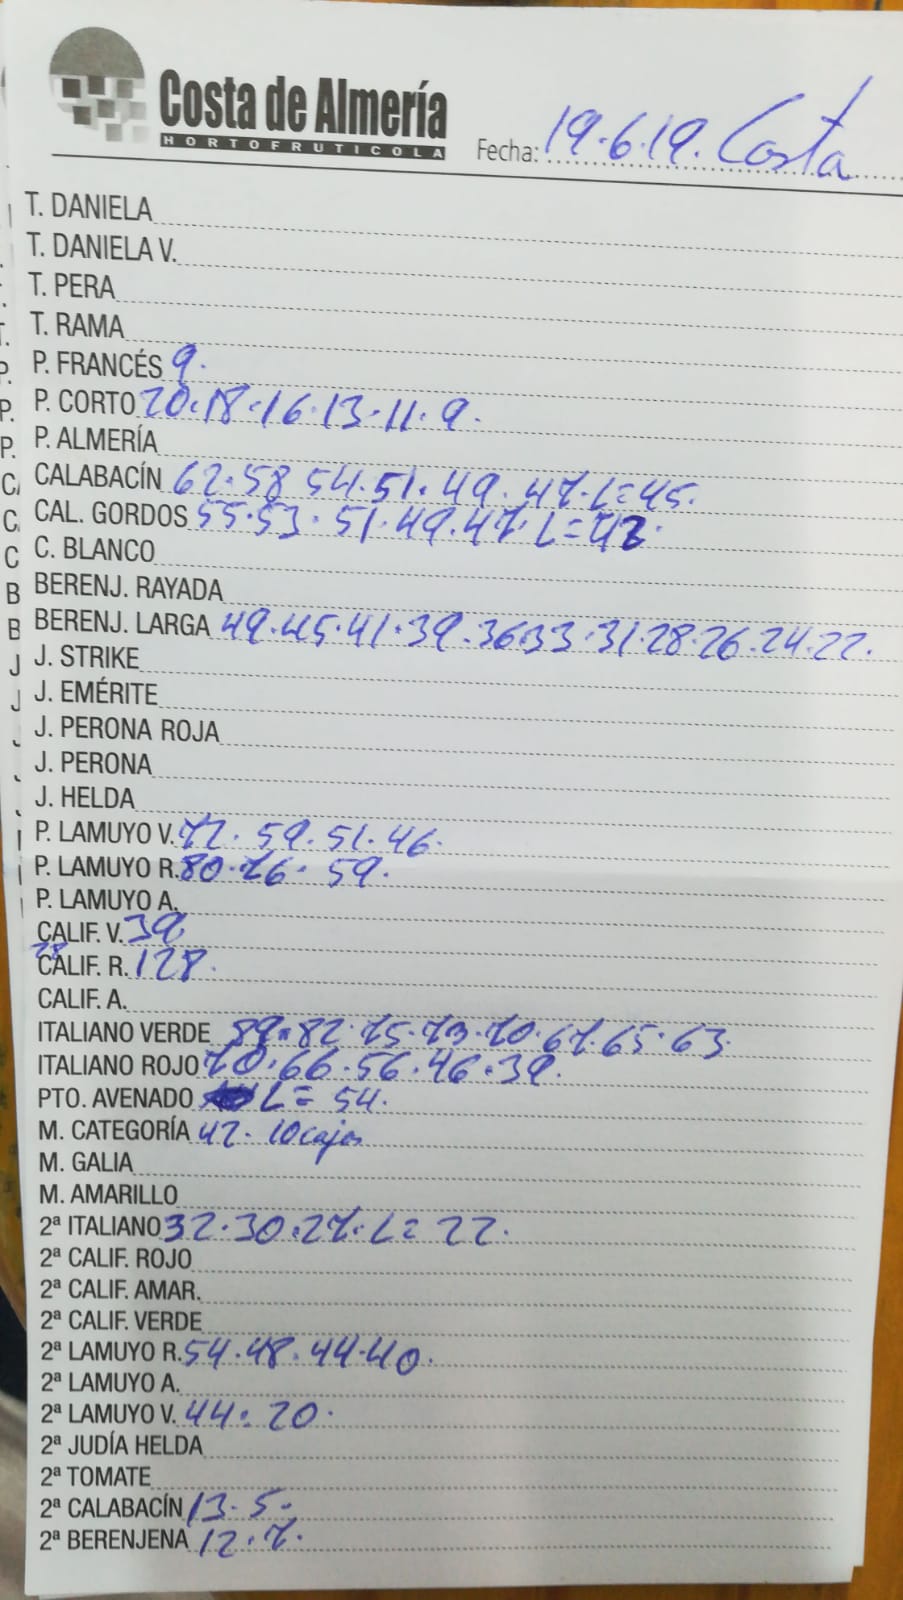 Costa de Almería
HORTOFRUTICOLA
Fecha: 19.6.19. Costa
T. DANIELA
T. DANIELA V.
T. PERA
T. RAMA
P. FRANCÉS 9.
P. CORTO 20.18.16.13.11.9.
P. ALMERÍA
CALABACÍN 62.58 54.51.49.47.L=45.
CAL. GORDOS 55.53.51.49.47.L=43.
C. BLANCO
BERENJ. RAYADA
BERENJ. LARGA 49.45.41.39.36.33.31.28.26.24.22.
J. STRIKE
J. EMÉRITE
J. PERONA ROJA
J. PERONA
J. HELDA
P. LAMUYO V. 72.59.51.46.
P. LAMUYO R. 80.76.59.
P. LAMUYO A.
CALIF. V. 39
CALIF. R. 128.
CALIF. A.
ITALIANO VERDE 89.82.75.73.70.67.65.63.
ITALIANO ROJO 70.66.56.46.39.
PTO. AVENADO L=54.
M. CATEGORÍA 42. 10 cajas
M. GALIA
M. AMARILLO
2ª ITALIANO 32.30.27.L=22.
2ª CALIF. ROJO
2ª CALIF. AMAR.
2ª CALIF. VERDE
2ª LAMUYO R. 54.48.44.40.
2ª LAMUYO A.
2ª LAMUYO V. 44.20.
2ª JUDÍA HELDA
2ª TOMATE
2ª CALABACÍN 13.5.
2ª BERENJENA 12.7.